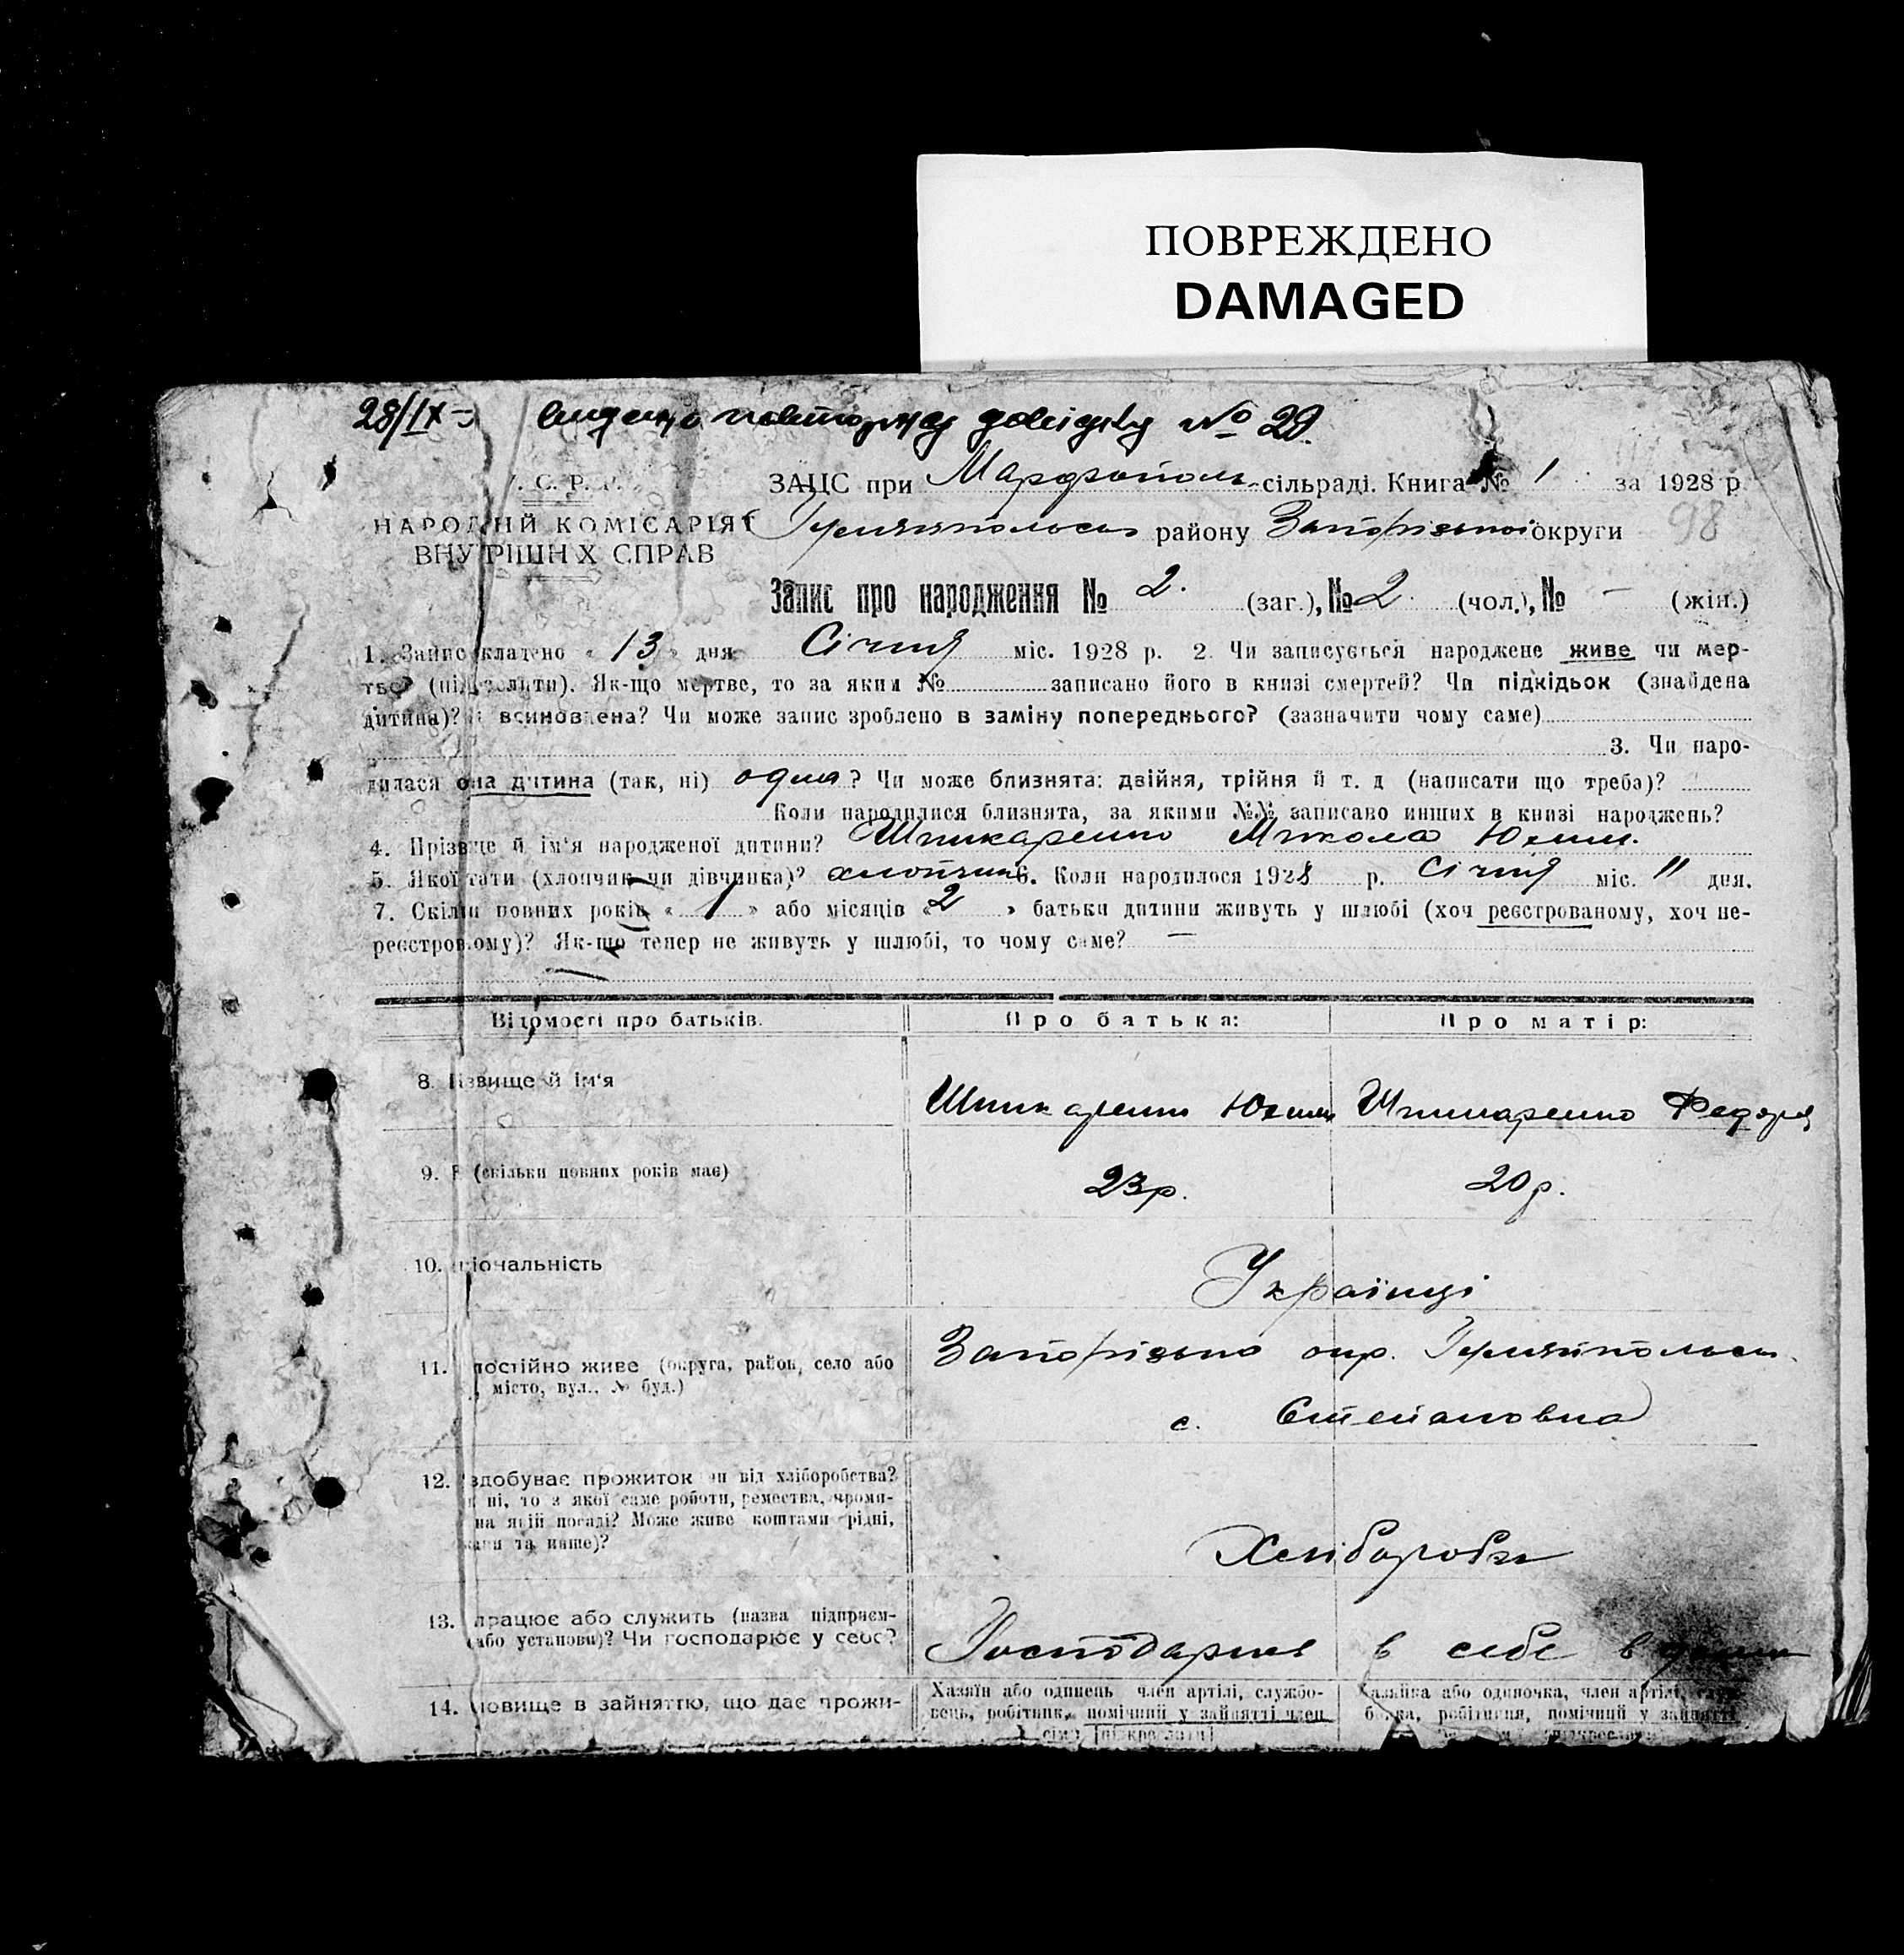 ПОВРЕЖДЕНО
DAMAGED
28/IX- видано повторну довідку № 29.
У. С. Р. Р. ЗАЦС при Марфополь- сільраді. Книга № 1 за 1928 р
НАРОДНІЙ КОМІСАРІЯТ Гуляйпольськ району Запорізької округи 98
ВНУТРІШНІХ СПРАВ
Запис про народження № 2. (заг.), № 2. (чол.), № — (жін.)
1. Запис складено « 13 » дня Січня міс. 1928 р. 2. Чи записується народжене живе чи мер-
тве? (підкреслити). Як-що мертве, то за яким № записано його в книзі смертей? Чи підкідьок (знайдена
дитина)? всиновлена? Чи може запис зроблено в заміну попереднього? (зазначити чому саме)
3. Чи наро-
дилася одна дитина (так, ні) одна? Чи може близнята: двійня, трійня й т. д (написати що треба)?
Коли народилися близнята, за якими №№ записано инших в книзі народжень?
4. Прізвище й ім'я народженої дитини? Шпикаренко Микола Юхим.
5. Якої стати (хлопчик чи дівчинка)? хлопчик 6. Коли народилося 1928 р. Січня міс. 11 дня.
7. Скільки повних років « 1 » або місяців « 2 » батьки дитини живуть у шлюбі (хоч реєстрованому, хоч не-
реєстрованому)? Як-що тепер не живуть у шлюбі, то чому саме? —
Відомості про батьків. Про батька: Про матір:
8. Прізвище й ім'я Шпикаренко Юхим Шпикаренко Федора
9. (скільки повних років має) 23р. 20р.
10. Національність Українці
11. постійно живе (округа, район, село або Запорізька окр. Гуляйпольськ.
місто, вул., № буд.) с. Степановка
12. здобуває прожиток чи від хліборобства?
ні, то з якої саме роботи, ремества, проми-
на якій посаді? Може живе коштами рідні,
та инше)? Хлібороби
13. працює або служить (назва підприєм-
(або установи)? Чи господарює у себе? Господарює в себе в
14. Становище в зайняттю, що дає прожи- Хазяїн або одинець член артілі, службо- Хазяйка або одиночка, член артілі,
вець, робітник, помічний у зайнятті член робітниця, помічний у зайнятті
сім'ї (підкреслити)